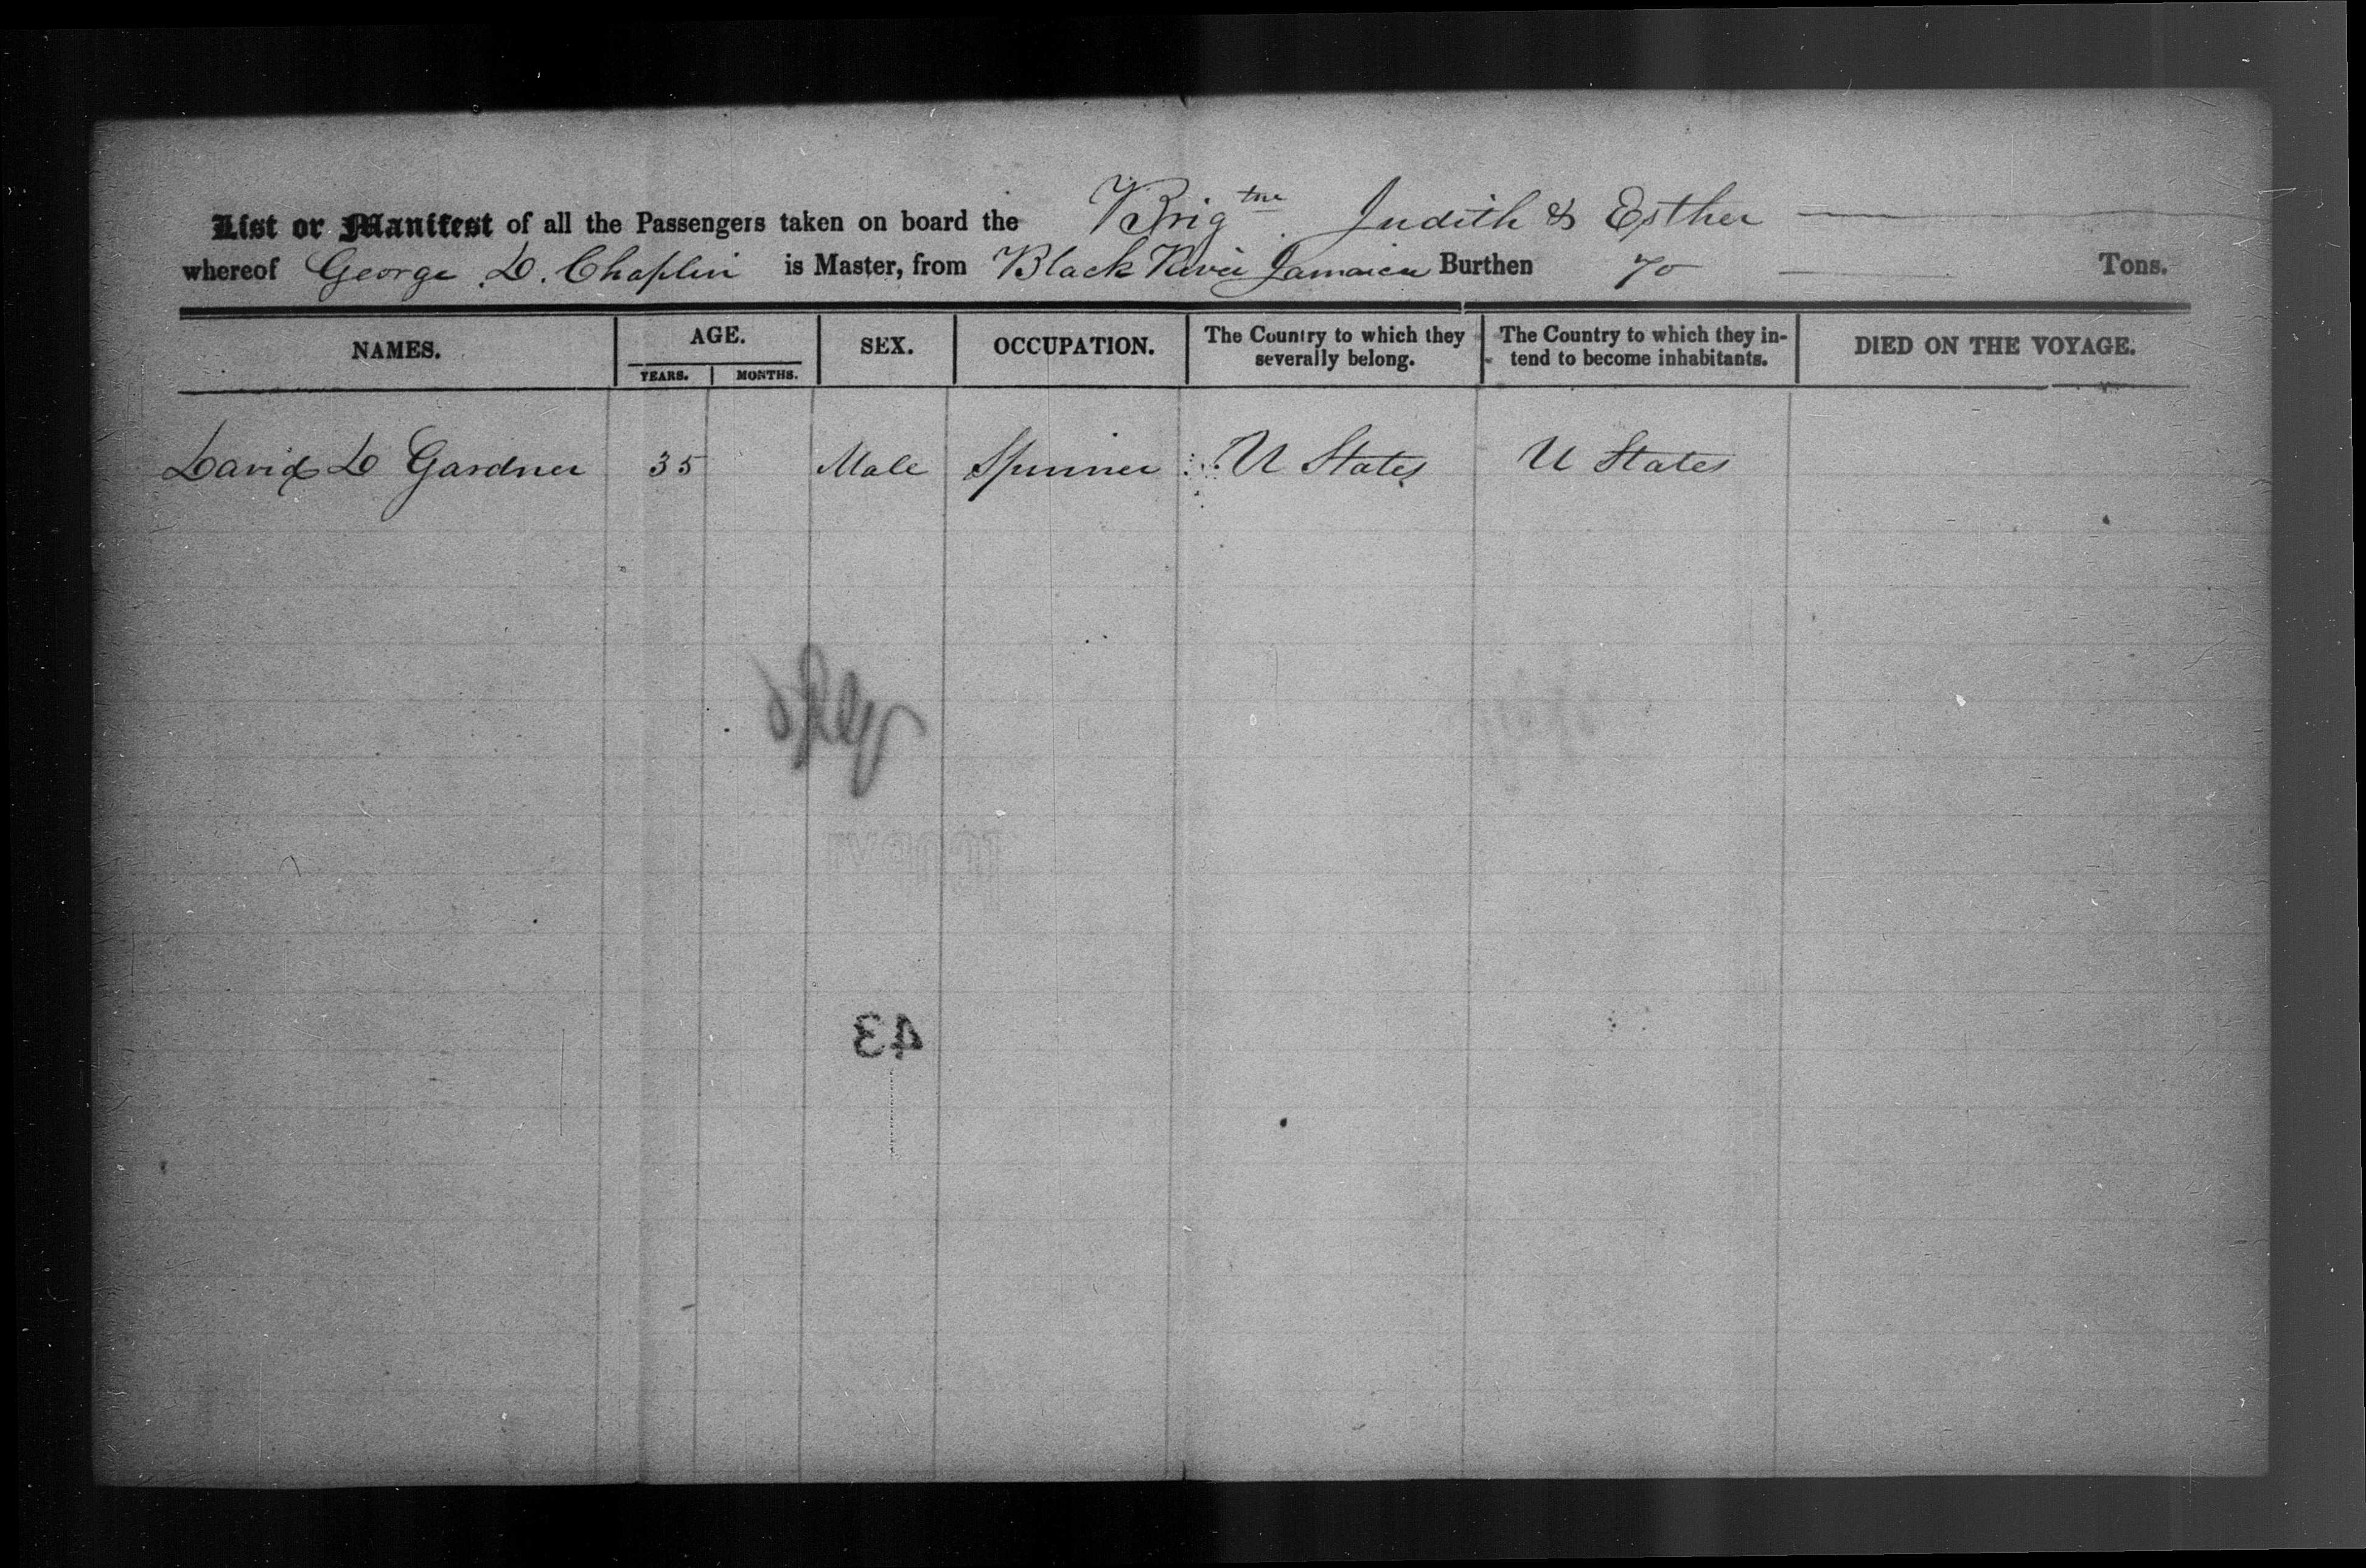 List or Manifest of all the Passengers taken on board the Brigtne Judith & Esther
whereof George D. Chaplin is Master, from Black River Jamaica Burthen 70 Tons.
NAMES. AGE. SEX. OCCUPATION. The Country to which they severally belong. The Country to which they in-tend to become inhabitants. DIED ON THE VOYAGE.
YEARS. MONTHS.
David D Gardner 35 Male Spinner U States U States
43